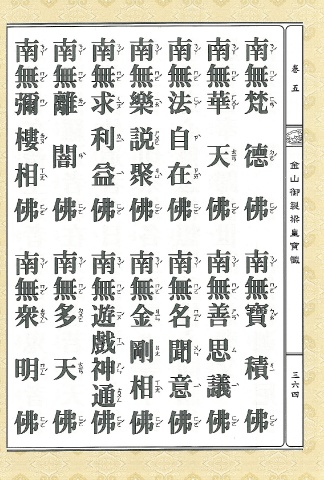 卷五
金山御製梁皇寶懺
三六四
南無梵德佛
南無寶積佛
南無華天佛
南無善思議佛
南無法自在佛
南無名聞意佛
南無樂説聚佛
南無金剛相佛
南無求利益佛
南無遊戲神通佛
南無離闇佛
南無多天佛
南無彌樓相佛
南無眾明佛